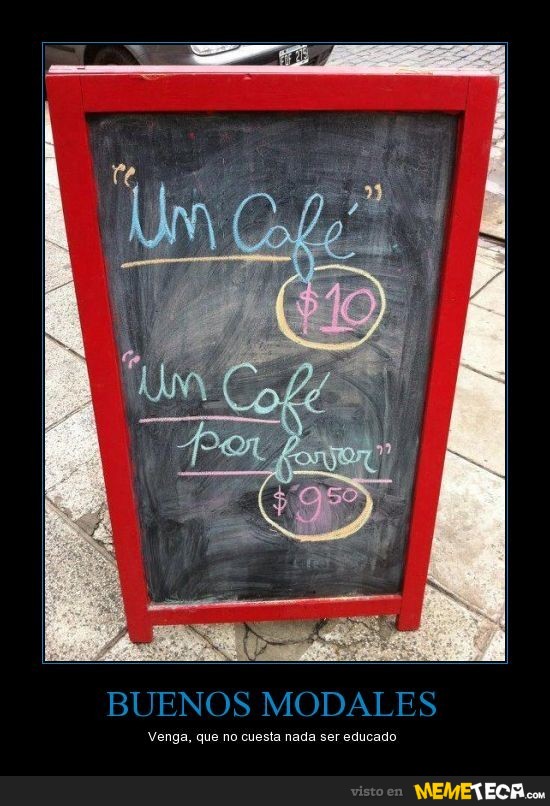 "Un Café"
$10
"Un Café
por favor"
$9 50
BUENOS MODALES
Venga, que no cuesta nada ser educado
visto en MEMETECA.COM